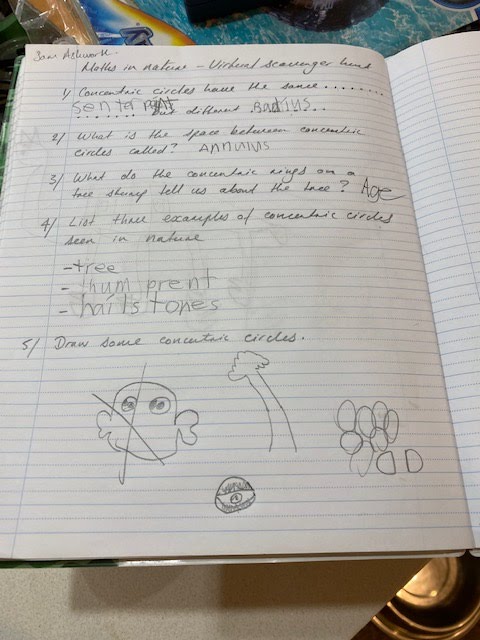 Sam Ashworth.
Maths in nature - Virtual Scavenger hunt
1) Concentric circles have the same ........
senta point
....... but different Badius..
2) What is the space between concentric
circles called? Annulus
3) What do the concentric rings on a
tree stump tell us about the tree? Age
4) List three examples of concentric circles
seen in nature
- tree
- thum prent
- hailstones
5) Draw some concentric circles.